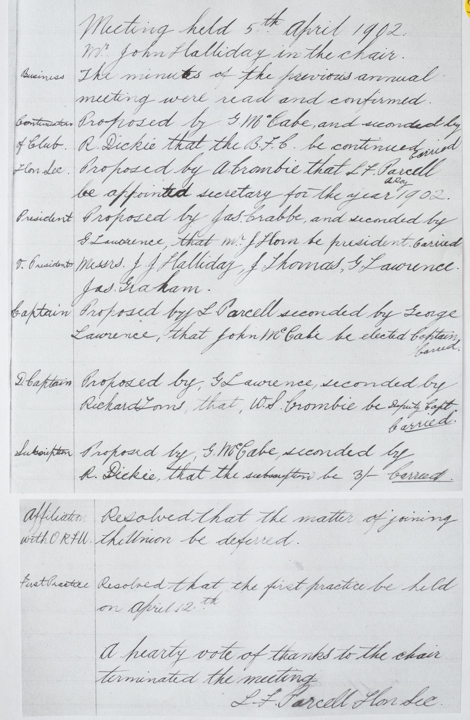 Meeting held 5th April 1902.
Mr John Halliday in the chair.
Business The minutes of the previous annual
meeting were read and confirmed.
Continuation Proposed by G McCabe, and seconded by
of Club. R Dickie that the B.F.C. be continued Carried
Hon Sec. Proposed by A Crombie that L F Parcell
be appointed secretary for the year 1902.
President Proposed by Jas Crabbe, and seconded by
G Lawrence, that Mr J Horn be president. Carried
V. Presidents Messrs. J J Halliday, J Thomas, G Lawrence.
Jas. Graham.
Captain Proposed by L Parcell seconded by George
Lawrence, that John McCabe be elected Captain
Carried.
D. Captain Proposed by, G Lawrence, seconded by
Richard Toms, that, W.S. Crombie be Deputy Capt
Carried.
Subscription Proposed by, G. McCabe, seconded by
R. Dickie, that the subscription be 3/- Carried.
Affiliation Resolved that the matter of joining
with O.R.F.U. the Union be deferred.
First Practice Resolved that the first practice be held
on April 12th
A hearty vote of thanks to the chair
terminated the meeting
L F Parcell Hon Sec.